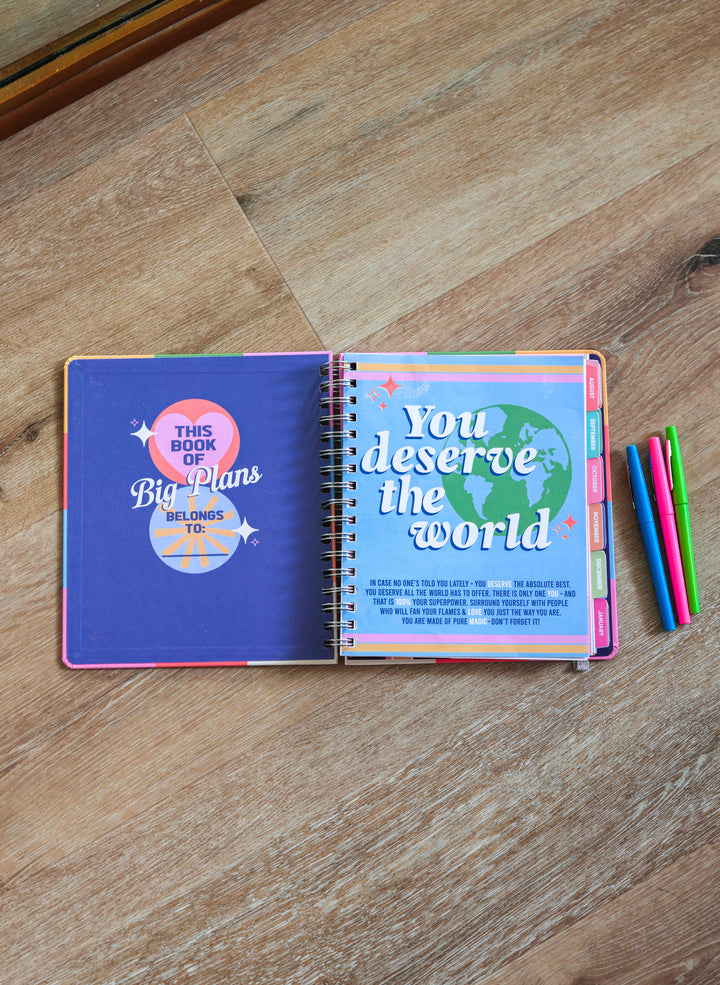 THIS
BOOK
OF
Big Plans
BELONGS
TO:
You
deserve
the
world
IN CASE NO ONE'S TOLD YOU LATELY - YOU DESERVE THE ABSOLUTE BEST.
YOU DESERVE ALL THE WORLD HAS TO OFFER. THERE IS ONLY ONE YOU - AND
THAT IS 100% YOUR SUPERPOWER. SURROUND YOURSELF WITH PEOPLE
WHO WILL FAN YOUR FLAMES & LOVE YOU JUST THE WAY YOU ARE.
YOU ARE MADE OF PURE MAGIC - DON'T FORGET IT!
AUGUST
SEPTEMBER
OCTOBER
NOVEMBER
DECEMBER
JANUARY